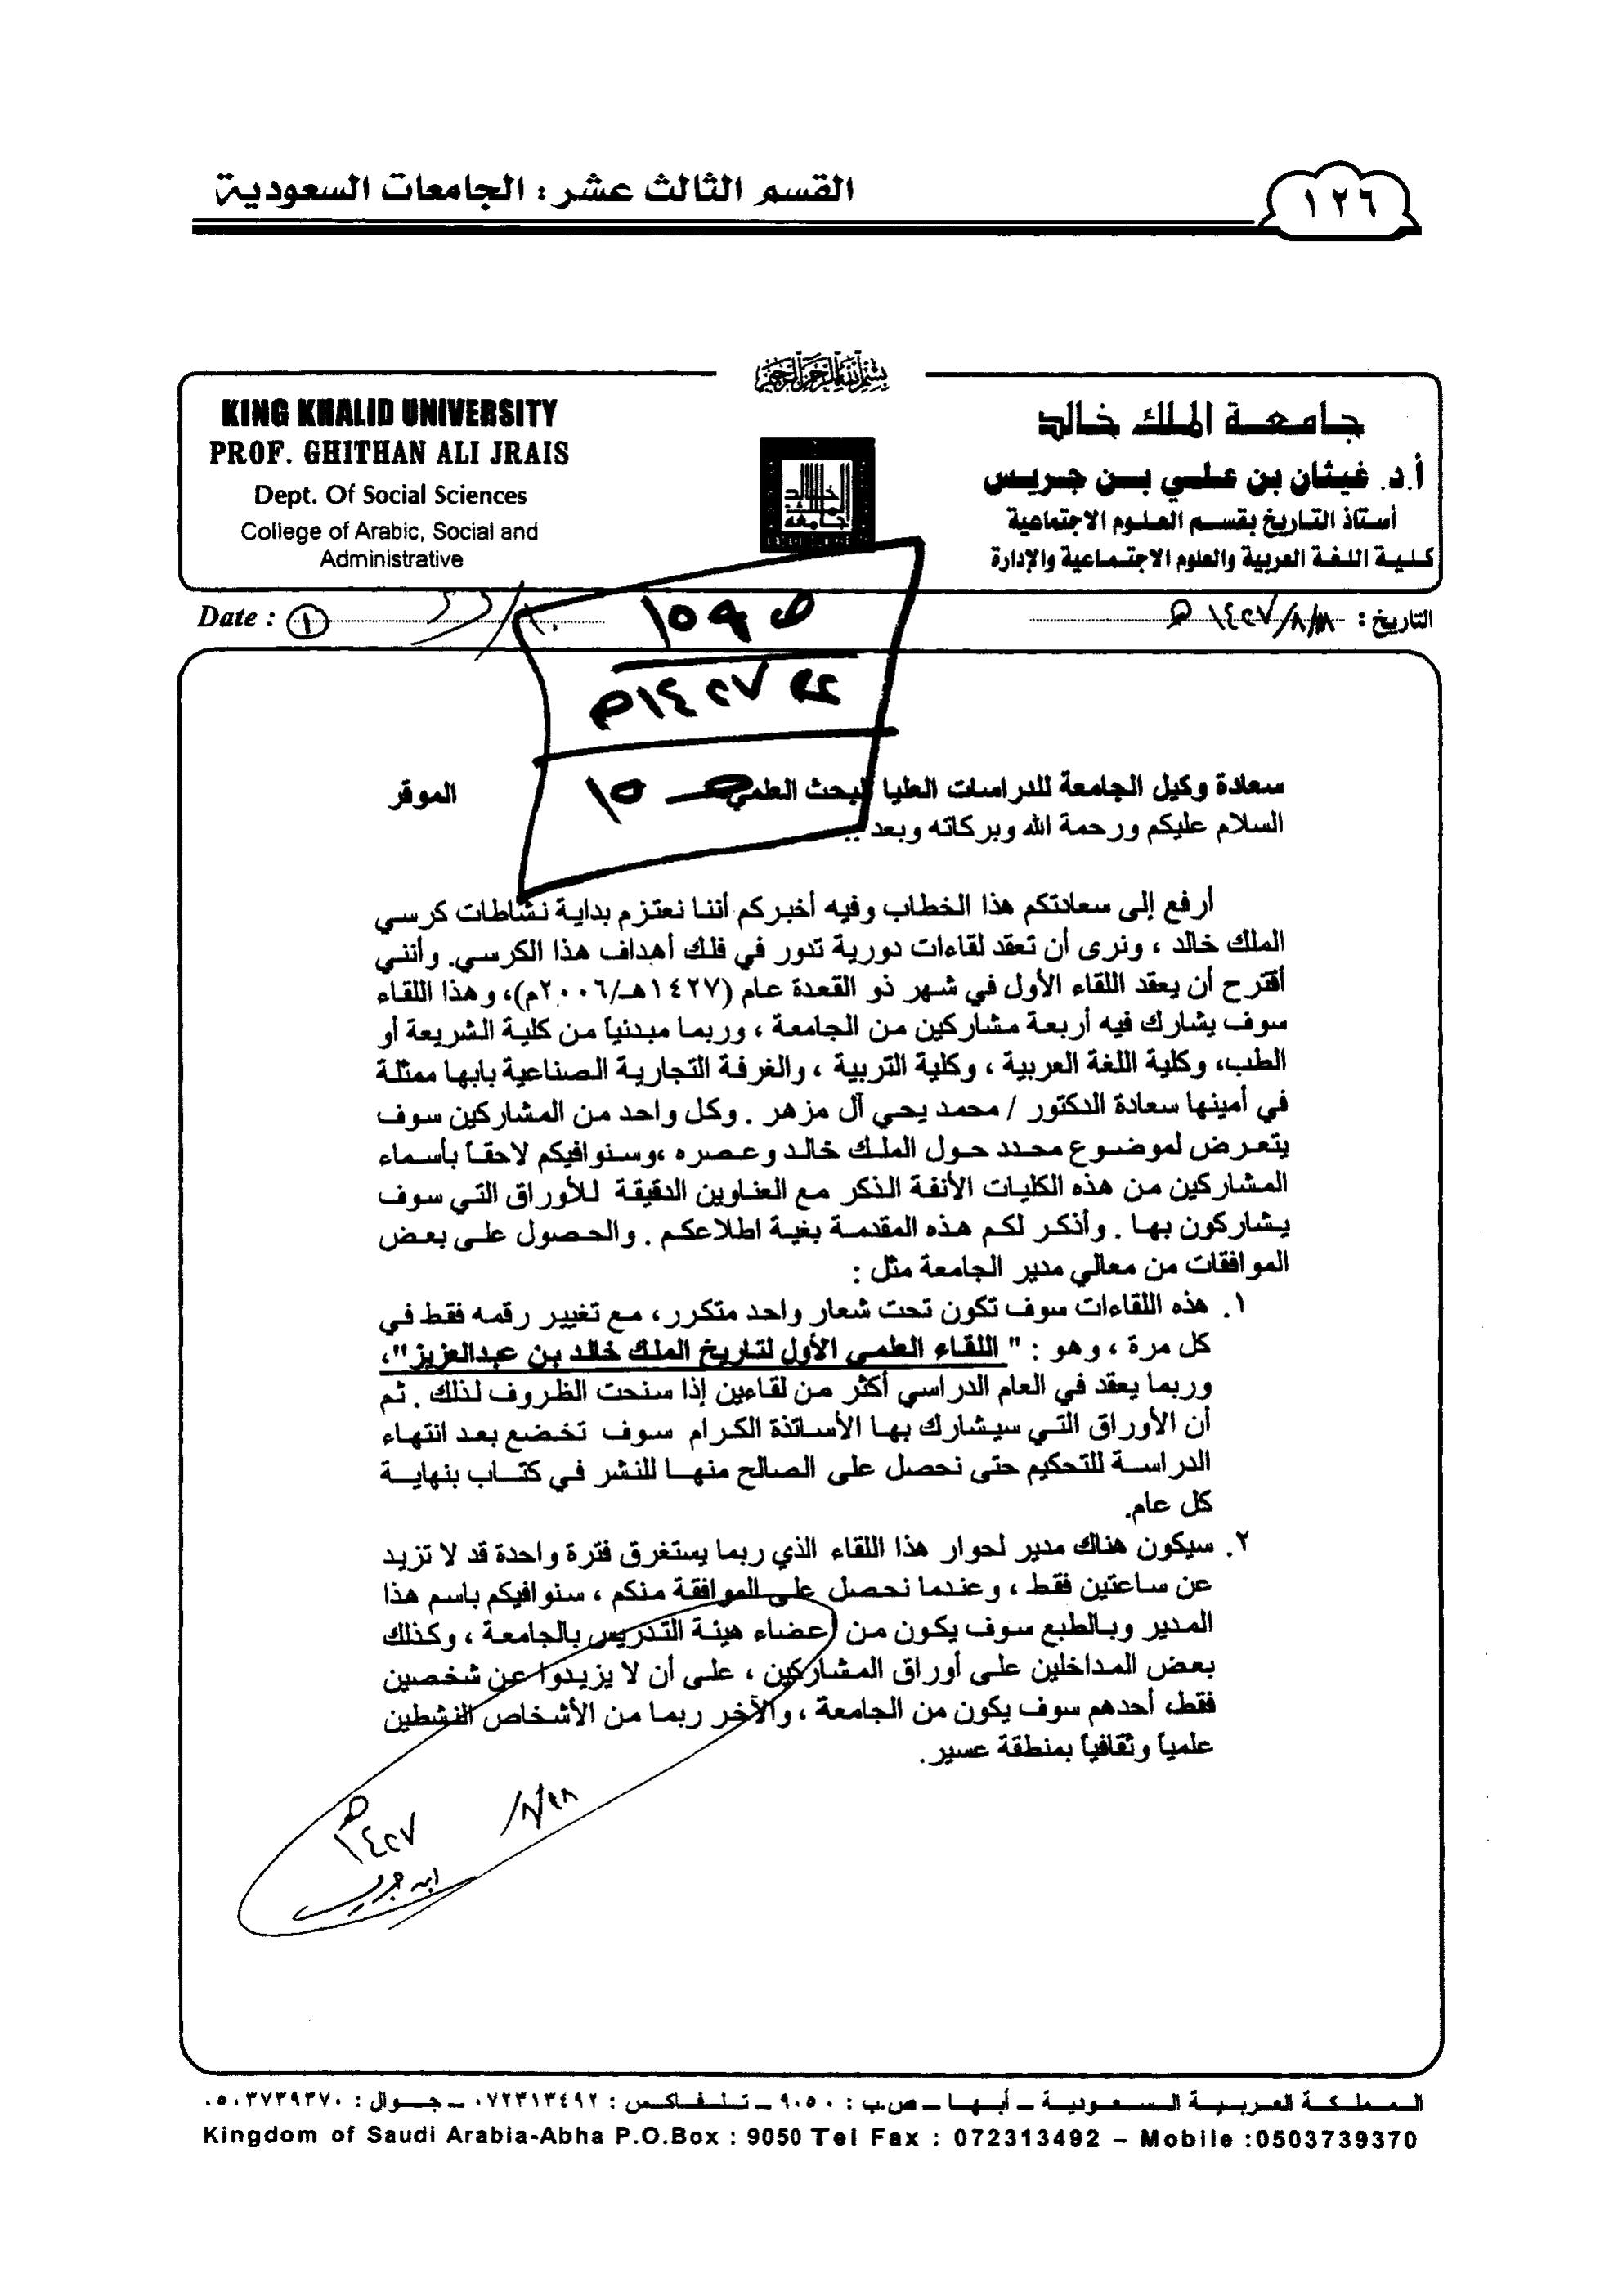 ١٢٦
القسم الثالث عشر : الجامعات السعودية
بسم الله الرحمن الرحيم
KING KHALID UNIVERSITY
PROF. GHITHAN ALI JRAIS
Dept. Of Social Sciences
College of Arabic, Social and
Administrative
جامعة الملك خالد
أ.د. غيثان بن علي بن جريس
أستاذ التاريخ بقسم العلوم الاجتماعية
كلية اللغة العربية والعلوم الاجتماعية والإدارة
التاريخ : ١٤٢٧/٨/١٨ هـ
Date : ١
سعادة وكيل الجامعة للدراسات العليا للبحث العلمي الموقر
السلام عليكم ورحمة الله وبركاته وبعد ..
أرفع إلى سعادتكم هذا الخطاب وفيه أخبركم أننا نعتزم بداية نشاطات كرسي
الملك خالد ، ونرى أن تعقد لقاءات دورية تدور في فلك أهداف هذا الكرسي. وأنني
أقترح أن يعقد اللقاء الأول في شهر ذو القعدة عام (١٤٢٧هـ/٢٠٠٦م)، وهذا اللقاء
سوف يشارك فيه أربعة مشاركين من الجامعة ، وربما مبدئياً من كلية الشريعة أو
الطب، وكلية اللغة العربية ، وكلية التربية ، والغرفة التجارية الصناعية بابها ممثلة
في أمينها سعادة الدكتور / محمد يحي آل مزهر . وكل واحد من المشاركين سوف
يتعرض لموضوع محدد حول الملك خالد وعصره ،وسنوافيكم لاحقاً بأسماء
المشاركين من هذه الكليات الأنفة الذكر مع العناوين الدقيقة للأوراق التي سوف
يشاركون بها . وأذكر لكم هذه المقدمة بغية اطلاعكم . والحصول على بعض
الموافقات من معالي مدير الجامعة مثل :
١. هذه اللقاءات سوف تكون تحت شعار واحد متكرر، مع تغيير رقمه فقط في
كل مرة ، وهو : " اللقاء العلمي الأول لتاريخ الملك خالد بن عبدالعزيز"،
وربما يعقد في العام الدراسي أكثر من لقاءين إذا سنحت الظروف لذلك . ثم
أن الأوراق التي سيشارك بها الأساتذة الكرام سوف تخضع بعد انتهاء
الدراسة للتحكيم حتى نحصل على الصالح منها للنشر في كتاب بنهاية
كل عام.
٢. سيكون هناك مدير لحوار هذا اللقاء الذي ربما يستغرق فترة واحدة قد لا تزيد
عن ساعتين فقط ، وعندما نحصل على الموافقة منكم ، سنوافيكم باسم هذا
المدير وبالطبع سوف يكون من أعضاء هيئة التدريس بالجامعة ، وكذلك
بعض المداخلين على أوراق المشاركين ، على أن لا يزيدوا عن شخصين
فقط، أحدهم سوف يكون من الجامعة ، والآخر ربما من الأشخاص النشطين
علمياً وثقافياً بمنطقة عسير.
١٤٢٧هـ
ابن جريس
المملكة العربية السعودية – أبها – ص.ب : ٩٠٥٠ – تلفاكس : ٠٧٢٣١٣٤٩٢ – جوال : ٠٥٠٣٧٣٩٣٧٠
Kingdom of Saudi Arabia-Abha P.O.Box : 9050 Tel Fax : 072313492 – Mobile :0503739370